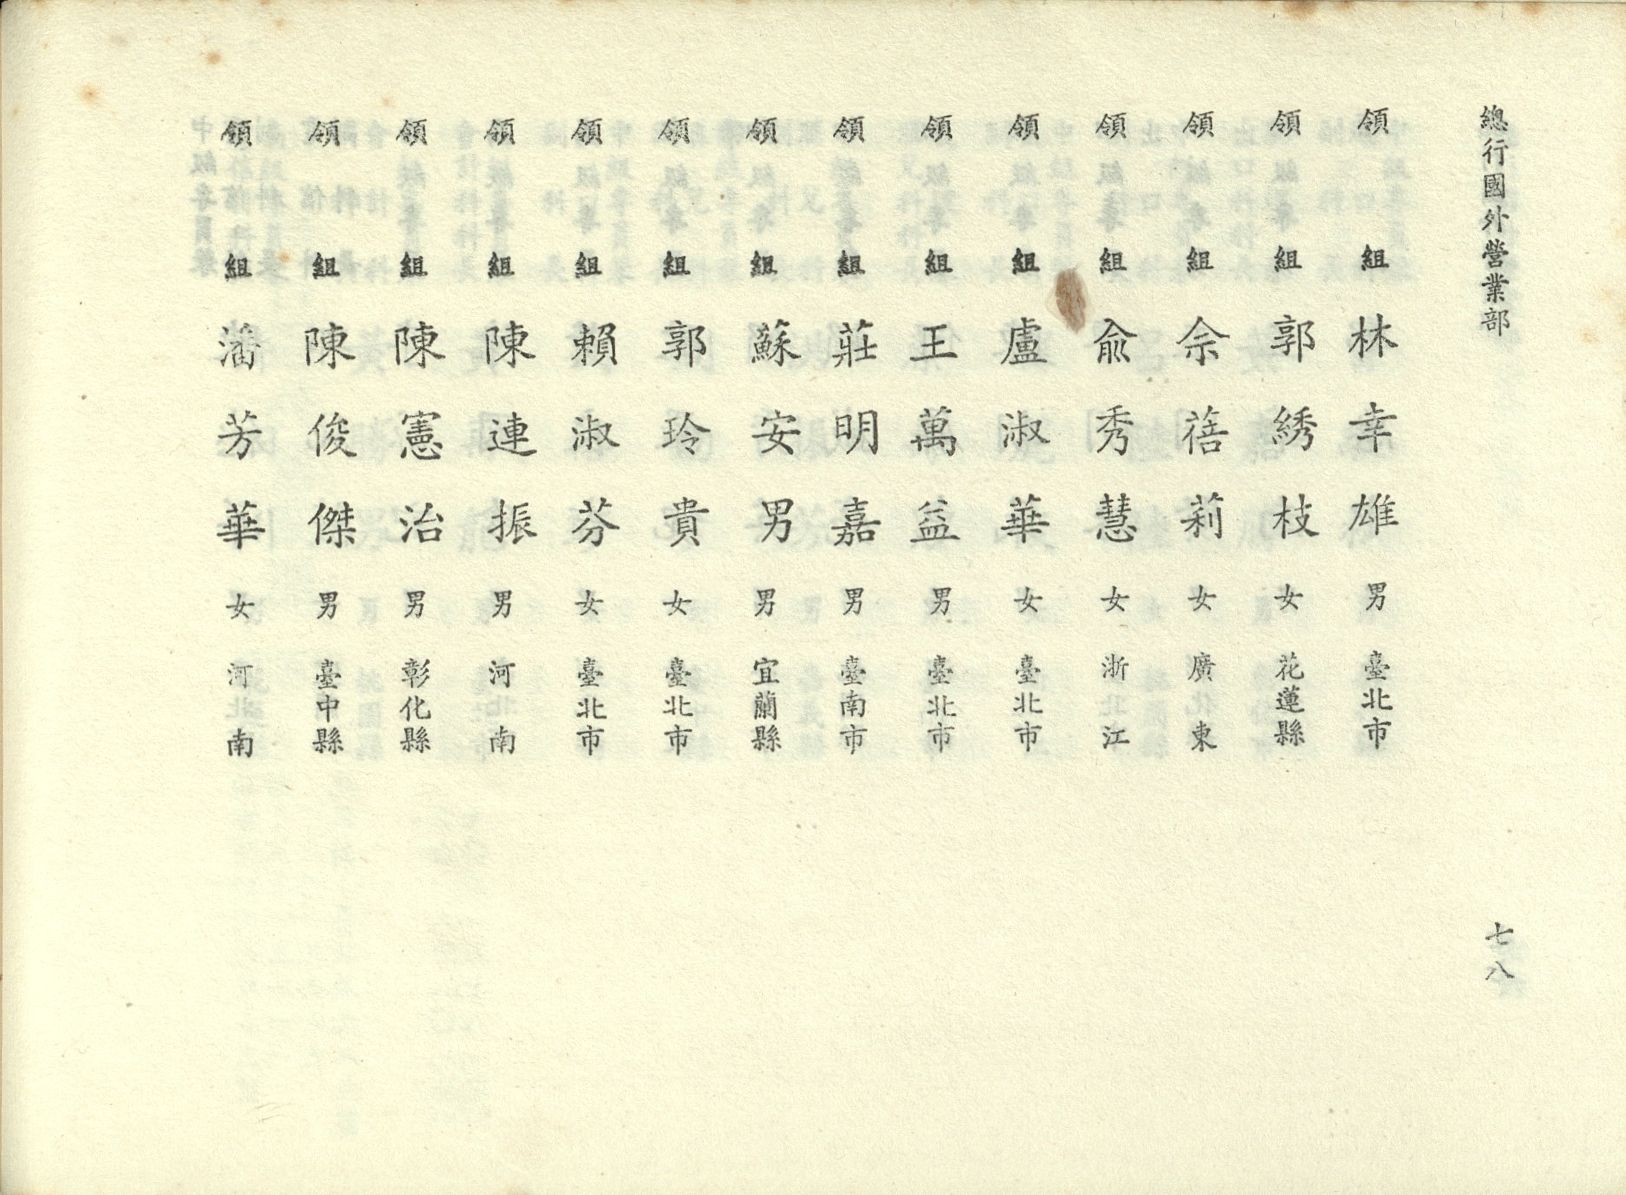 總行國外營業部
七八
領組 林幸雄 男 臺北市
領組 郭綉枝 女 花蓮縣
領組 佘蓓莉 女 廣東
領組 俞秀慧 女 浙江
領組 盧淑華 女 臺北市
領組 王萬益 男 臺北市
領組 莊明嘉 男 臺南市
領組 蘇安男 男 宜蘭縣
領組 郭玲貴 女 臺北市
領組 賴淑芬 女 臺北市
領組 陳連振 男 河南
領組 陳憲治 男 彰化縣
領組 陳俊傑 男 臺中縣
領組 潘芳華 女 河南